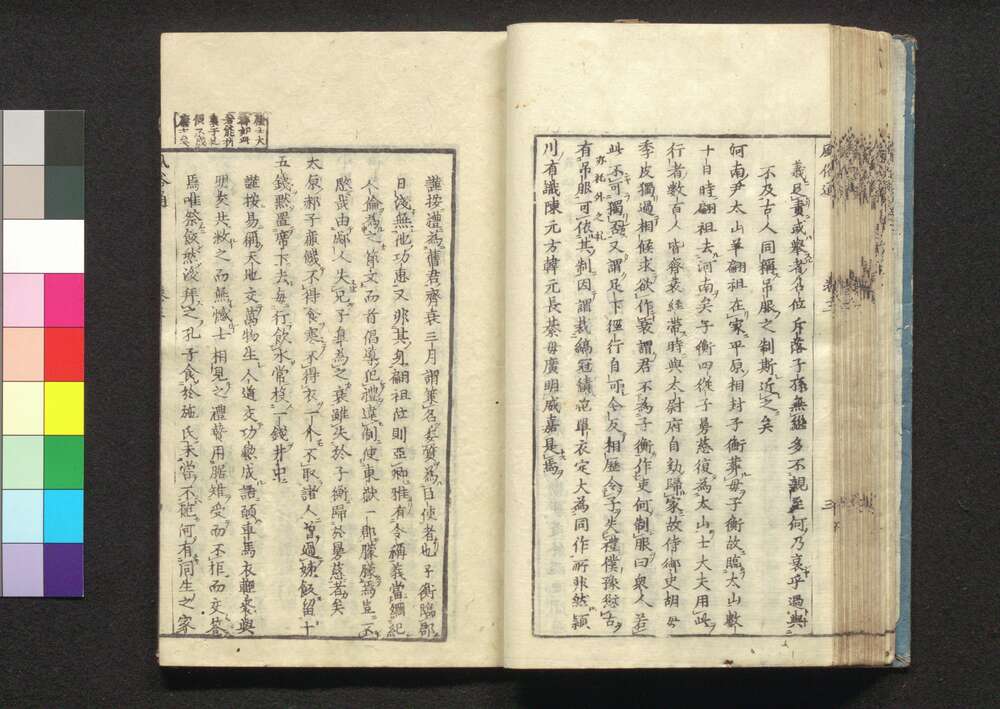 義足責或舉者名位斥落子孫無繼多不親至何乃衰乎過與
不及古人同稱吊服之制斯近之矣
河南尹太山羊翩祖在家平原相封子衡葬母子衡故臨太山數
十日時翩祖去河南矣子衡四從子曼慈復為太山士大夫用此
行者數百人皆齊衰絰帶時與太尉府自劾歸家故侍御史胡母
季皮獨過相候求欲作衰謂君不為子衡作吏何制服曰衆人若
此不可獨否又謂足下徑行自可今反相歷令子失禮僕豫愆古
有吊服可依其制因謂裁縞冠幘袍單衣定大為同作所非然潁
川有識陳元方韓元長綦毋廣明咸嘉是焉
謹按禮為舊君齊衰三月謂策名委質為臣使者也子衡臨郡
日淺無他功惠又非其身翩祖位則亞卿雅有令稱義當綱紀
人倫為之節文而首倡導犯禮違制使東嶽一郡朦朦焉豈不
愍哉由鄰人失兄子皐為之衰雖失於子衡歸於曼慈者矣
太原郝子廉饑不得食寒不得衣一介不取諸人曾過姊飯留十
五錢默置席下去每行飲水常投一錢井中
謹按易稱天地交萬物生人道交功勲成語願車馬衣輕裘與
朋友共敝之而無憾士相見之禮贄用腒雉受而不拒而交答
焉唯祭飯然後拜之孔子食於施氏未嘗不飽何有同生之家